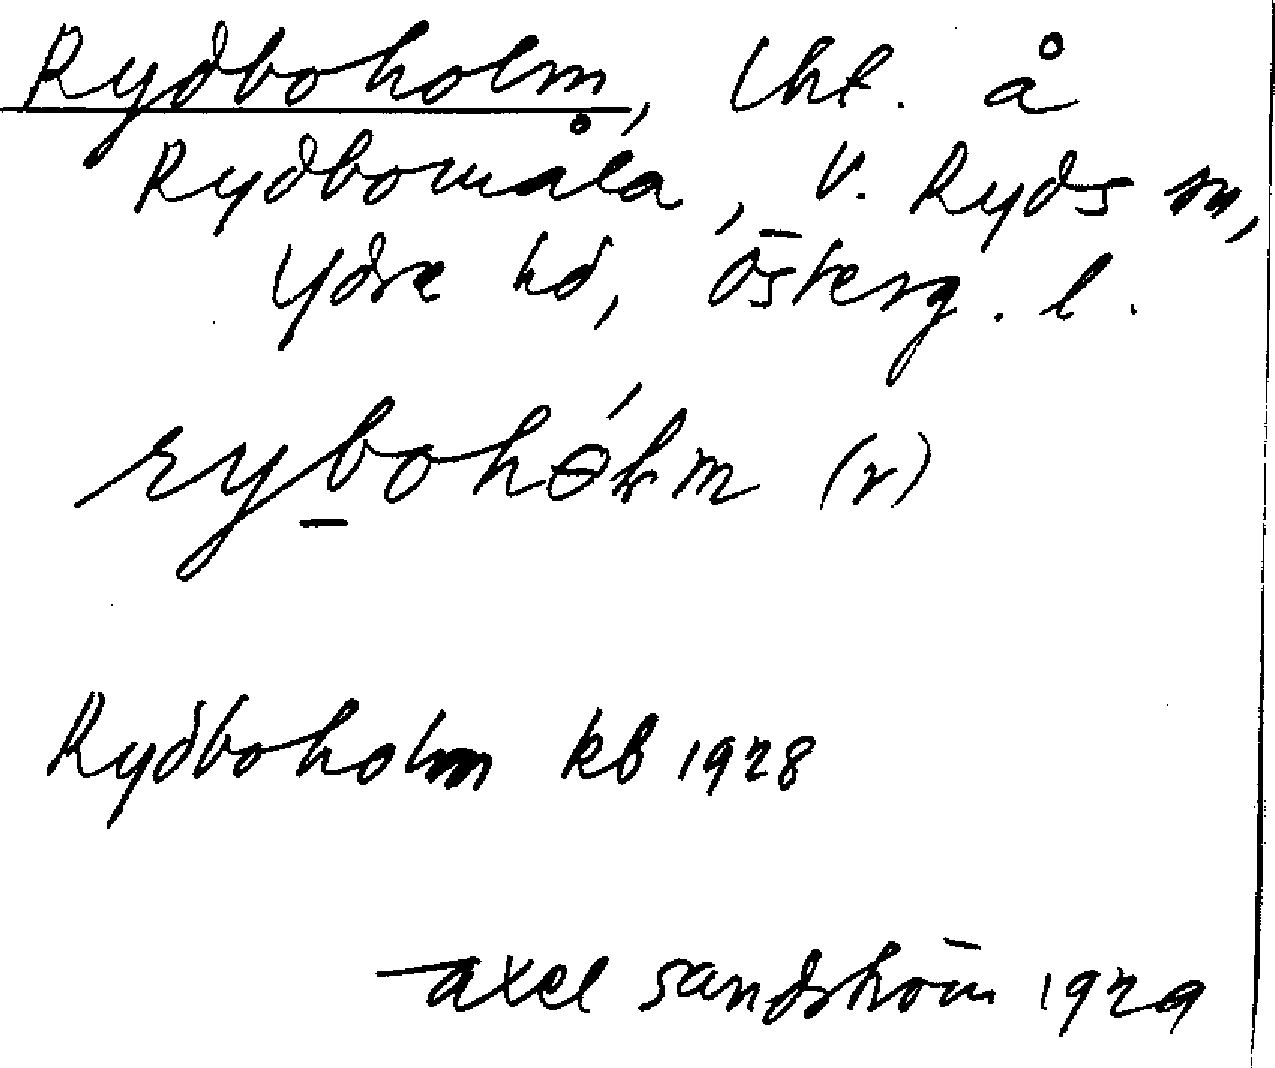 Rydboholm, lht. å
Rydbomåla, V. Ryds sn,
Ydre hd, Österg. l.
rybohɵ́lm (r)
Rydboholm kb 1928
Axel Sandström 1929